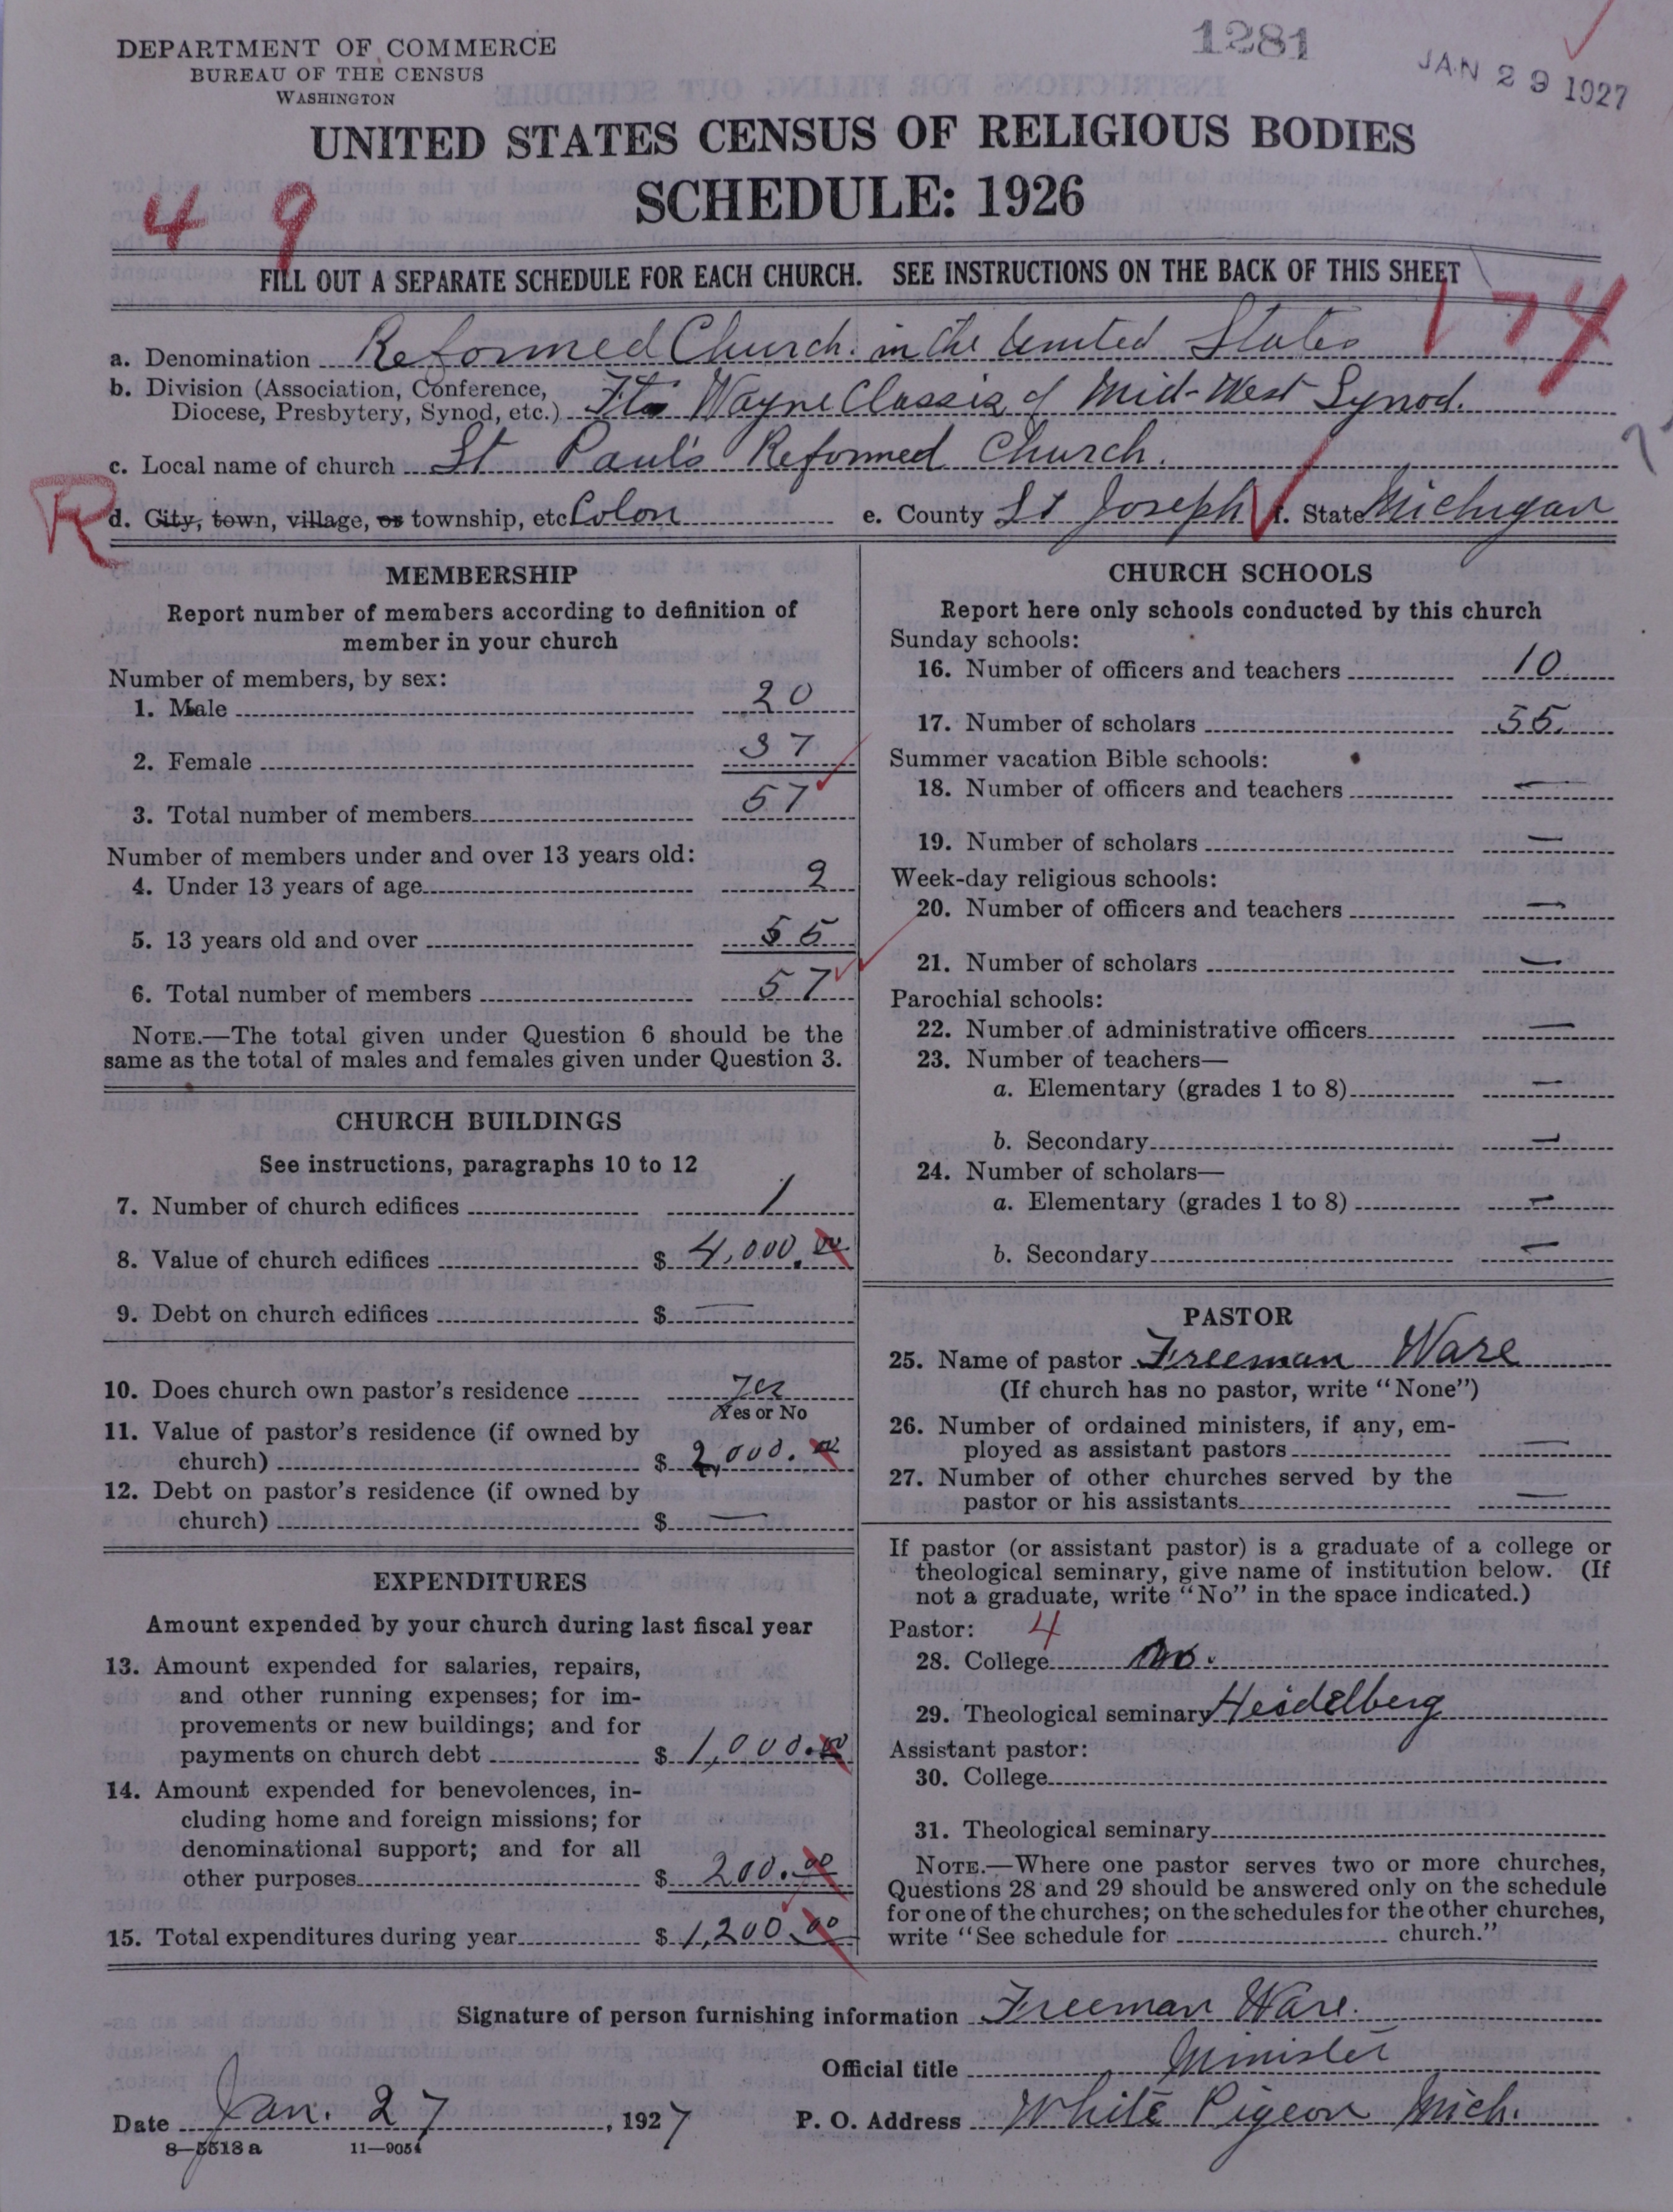 DEPARTMENT OF COMMERCE
BUREAU OF THE CENSUS
WASHINGTON
1281
JAN 29 1927
UNITED STATES CENSUS OF RELIGIOUS BODIES
SCHEDULE: 1926
49
FILL OUT A SEPARATE SCHEDULE FOR EACH CHURCH. SEE INSTRUCTIONS ON THE BACK OF THIS SHEET
174
a. Denomination Reformed Church in the United States
b. Division (Association, Conference,
Diocese, Presbytery, Synod, etc.) Ft. Wayne Classis of Mid-West Synod.
c. Local name of church St Paul's Reformed Church.
R
d. City, town, village, or township, etc Colon e. County St Joseph f. State Michigan
MEMBERSHIP
Report number of members according to definition of
member in your church
Number of members, by sex:
1. Male 20
2. Female 37
3. Total number of members 57
Number of members under and over 13 years old:
4. Under 13 years of age 2
5. 13 years old and over 55
6. Total number of members 57
NOTE.—The total given under Question 6 should be the
same as the total of males and females given under Question 3.
CHURCH BUILDINGS
See instructions, paragraphs 10 to 12
7. Number of church edifices 1
8. Value of church edifices $ 4,000.00
9. Debt on church edifices $ —
10. Does church own pastor's residence yes
Yes or No
11. Value of pastor's residence (if owned by
church) $ 2,000.00
12. Debt on pastor's residence (if owned by
church) $ —
EXPENDITURES
Amount expended by your church during last fiscal year
13. Amount expended for salaries, repairs,
and other running expenses; for im-
provements or new buildings; and for
payments on church debt $ 1,000.00
14. Amount expended for benevolences, in-
cluding home and foreign missions; for
denominational support; and for all
other purposes $ 200.00
15. Total expenditures during year $ 1,200.00
CHURCH SCHOOLS
Report here only schools conducted by this church
Sunday schools:
16. Number of officers and teachers 10
17. Number of scholars 55.
Summer vacation Bible schools:
18. Number of officers and teachers —
19. Number of scholars —
Week-day religious schools:
20. Number of officers and teachers —
21. Number of scholars —
Parochial schools:
22. Number of administrative officers —
23. Number of teachers—
a. Elementary (grades 1 to 8) —
b. Secondary —
24. Number of scholars—
a. Elementary (grades 1 to 8) —
b. Secondary —
PASTOR
25. Name of pastor Freeman Ware
(If church has no pastor, write "None")
26. Number of ordained ministers, if any, em-
ployed as assistant pastors —
27. Number of other churches served by the
pastor or his assistants —
If pastor (or assistant pastor) is a graduate of a college or
theological seminary, give name of institution below. (If
not a graduate, write "No" in the space indicated.)
Pastor: 4
28. College No.
29. Theological seminary Heidelberg
Assistant pastor:
30. College
31. Theological seminary
NOTE.—Where one pastor serves two or more churches,
Questions 28 and 29 should be answered only on the schedule
for one of the churches; on the schedules for the other churches,
write "See schedule for church."
Signature of person furnishing information Freeman Ware.
Official title Minister
Date Jan. 27, 1927 P. O. Address White Pigeon Mich.
8—5518 a 11—9054